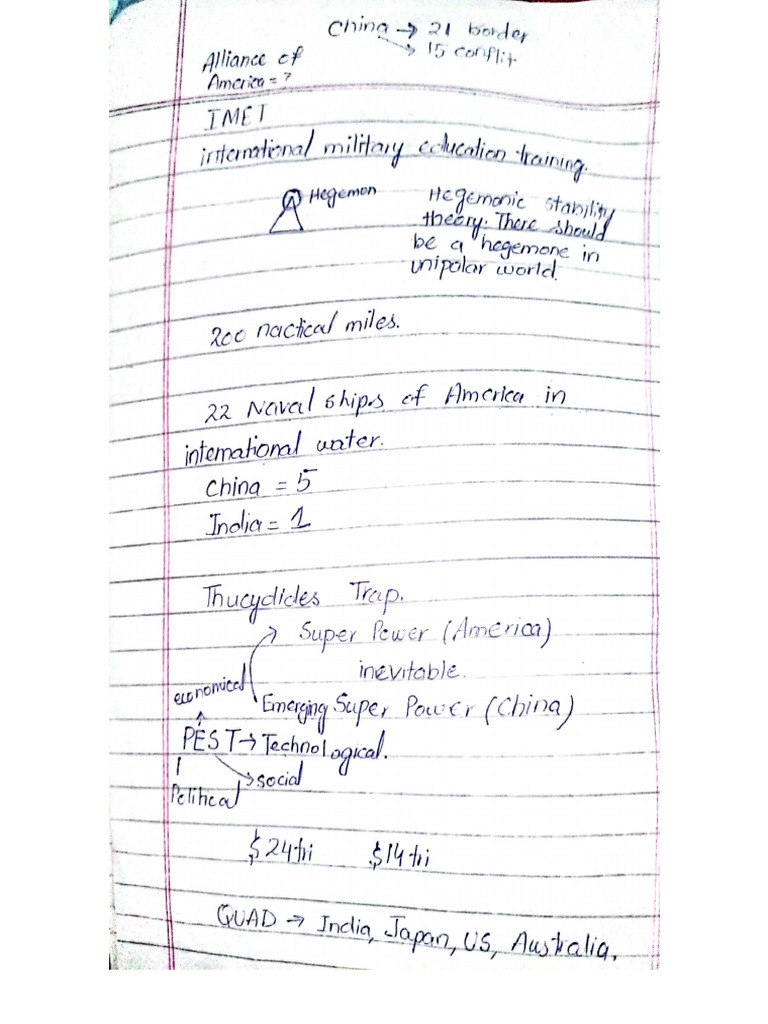 China → 21 border
→ 15 conflit
Alliance of
America = ?
IMET
international military education training.
Hegemon
Hegemonic stability
theory. There should
be a hegemone in
unipolar world.
200 nactical miles.
22 Naval ships of America in
international water.
China = 5
India = 1
Thucydides Trap.
Super Power (America)
inevitable.
economical
Emerging Super Power (China)
PEST → Technological.
social
Political
$24tri $14tri
QUAD → India, Japan, US, Australia.